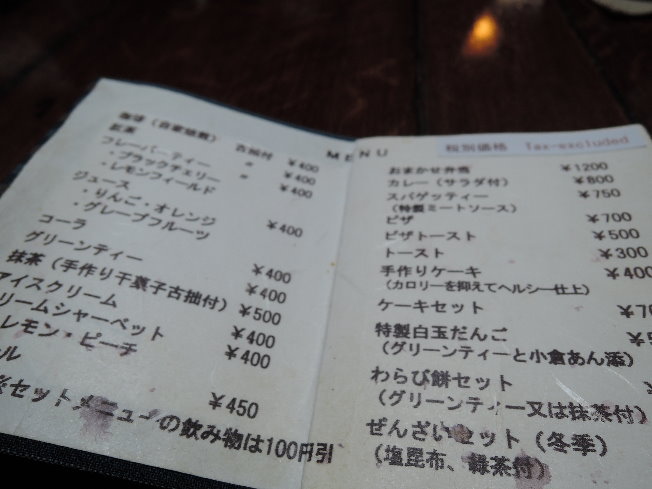 MENU
珈琲（自家焙煎） 古抽付 ¥400
紅茶 〃 ¥400
フレーバーティー ¥400
・ブラックチェリー
・レモンフィールド
ジュース ¥400
・りんご・オレンジ
・グレープフルーツ
コーラ ¥400
グリーンティー ¥400
抹茶（手作り干菓子古抽付） ¥500
アイスクリーム ¥400
リームシャーベット ¥400
レモン・ピーチ
ル ¥450
セットメニューの飲み物は100円引
税別価格 Tax-excluded
おまかせ弁当 ¥1200
カレー（サラダ付） ¥800
スパゲッティー ¥750
（特製ミートソース）
ピザ ¥700
ピザトースト ¥500
トースト ¥300
手作りケーキ ¥400
（カロリーを抑えてヘルシー仕上）
ケーキセット ¥70
特製白玉だんご ¥5
（グリーンティーと小倉あん添）
わらび餅セット
（グリーンティー又は抹茶付）
ぜんざいセット（冬季）
（塩昆布、緑茶付）